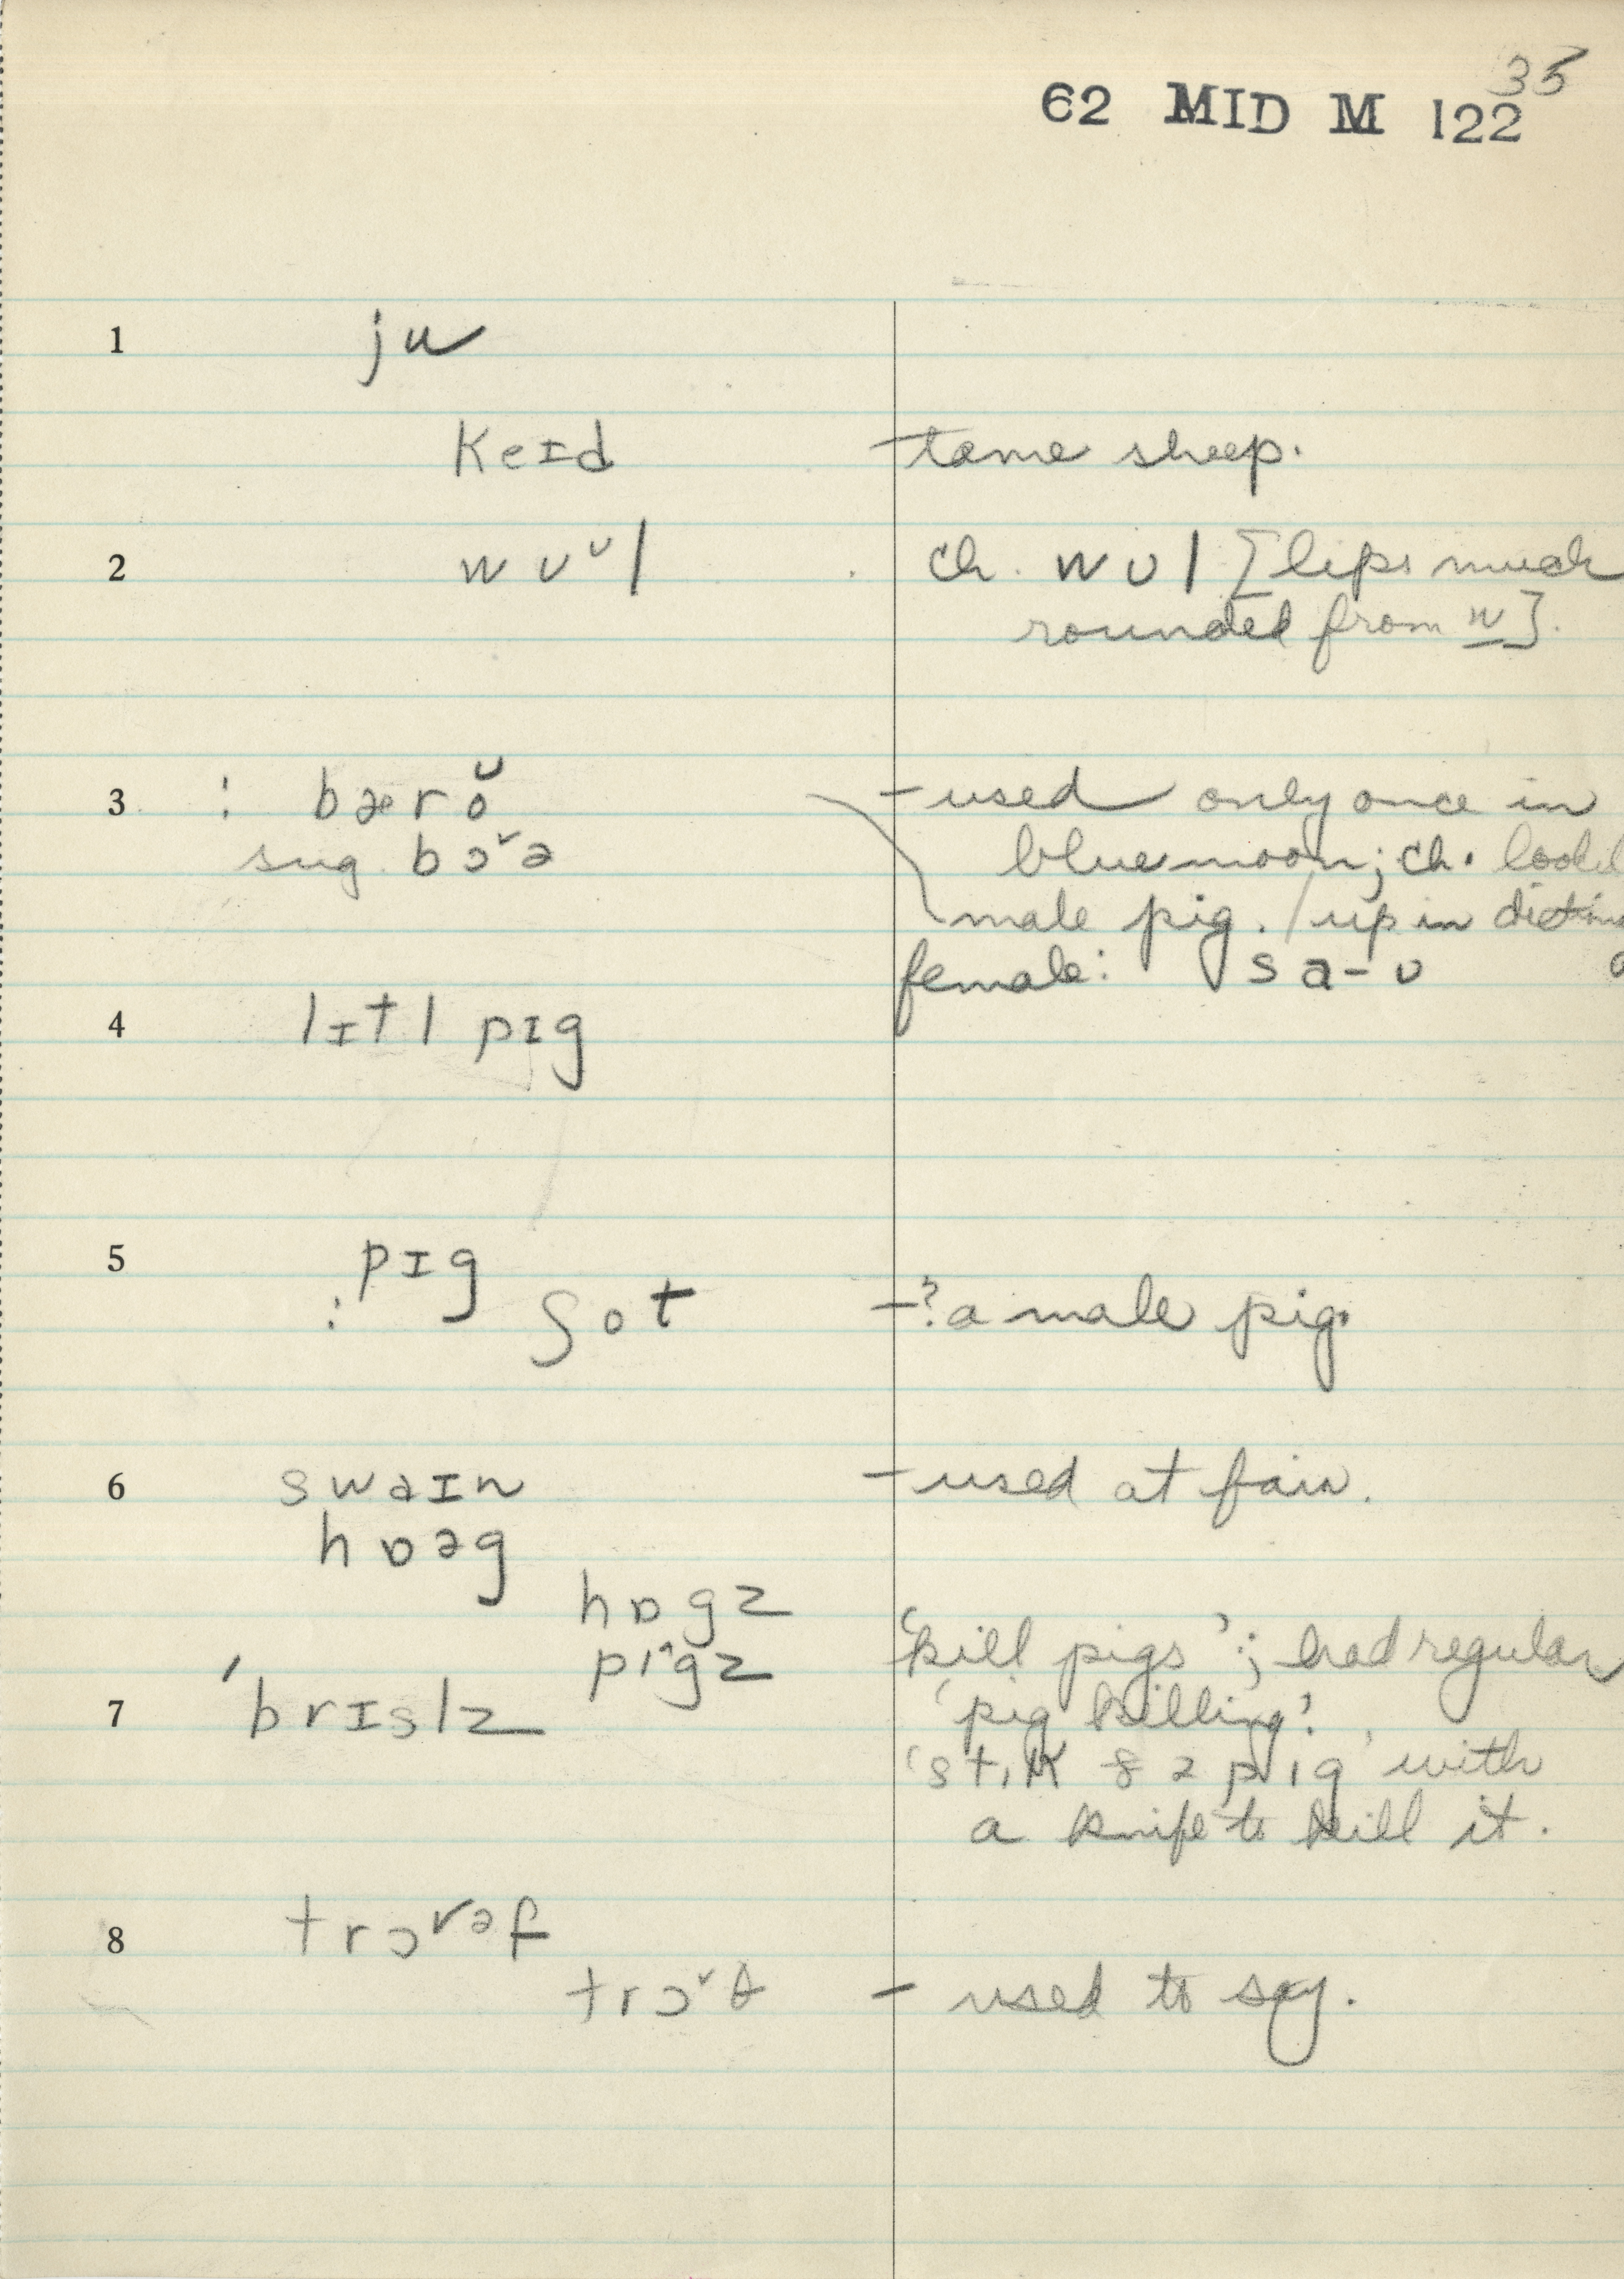 35
62 MID M 122
1 ju
keɪd – tame sheep.
2 wʊᵛl ch. wʊl [lips much
rounded from w].
3 : bærŏ – used only once in
sug. bɔˇə blue moon; ch. look'd
male pig. / up in
female: sa-ʊ
4 lɪtl pɪg
5 pɪg
: ʃot – ? a male pig.
6 swaɪn – used at fair.
hɒəg
hɒgz
pi^gz 'kill pigs'; had regular
7 'brɪslz 'pig killing'.
'stɪk ðə pɪg' with
a knife to kill it.
8 trɔˇəf
trɔˇθ – used to say.